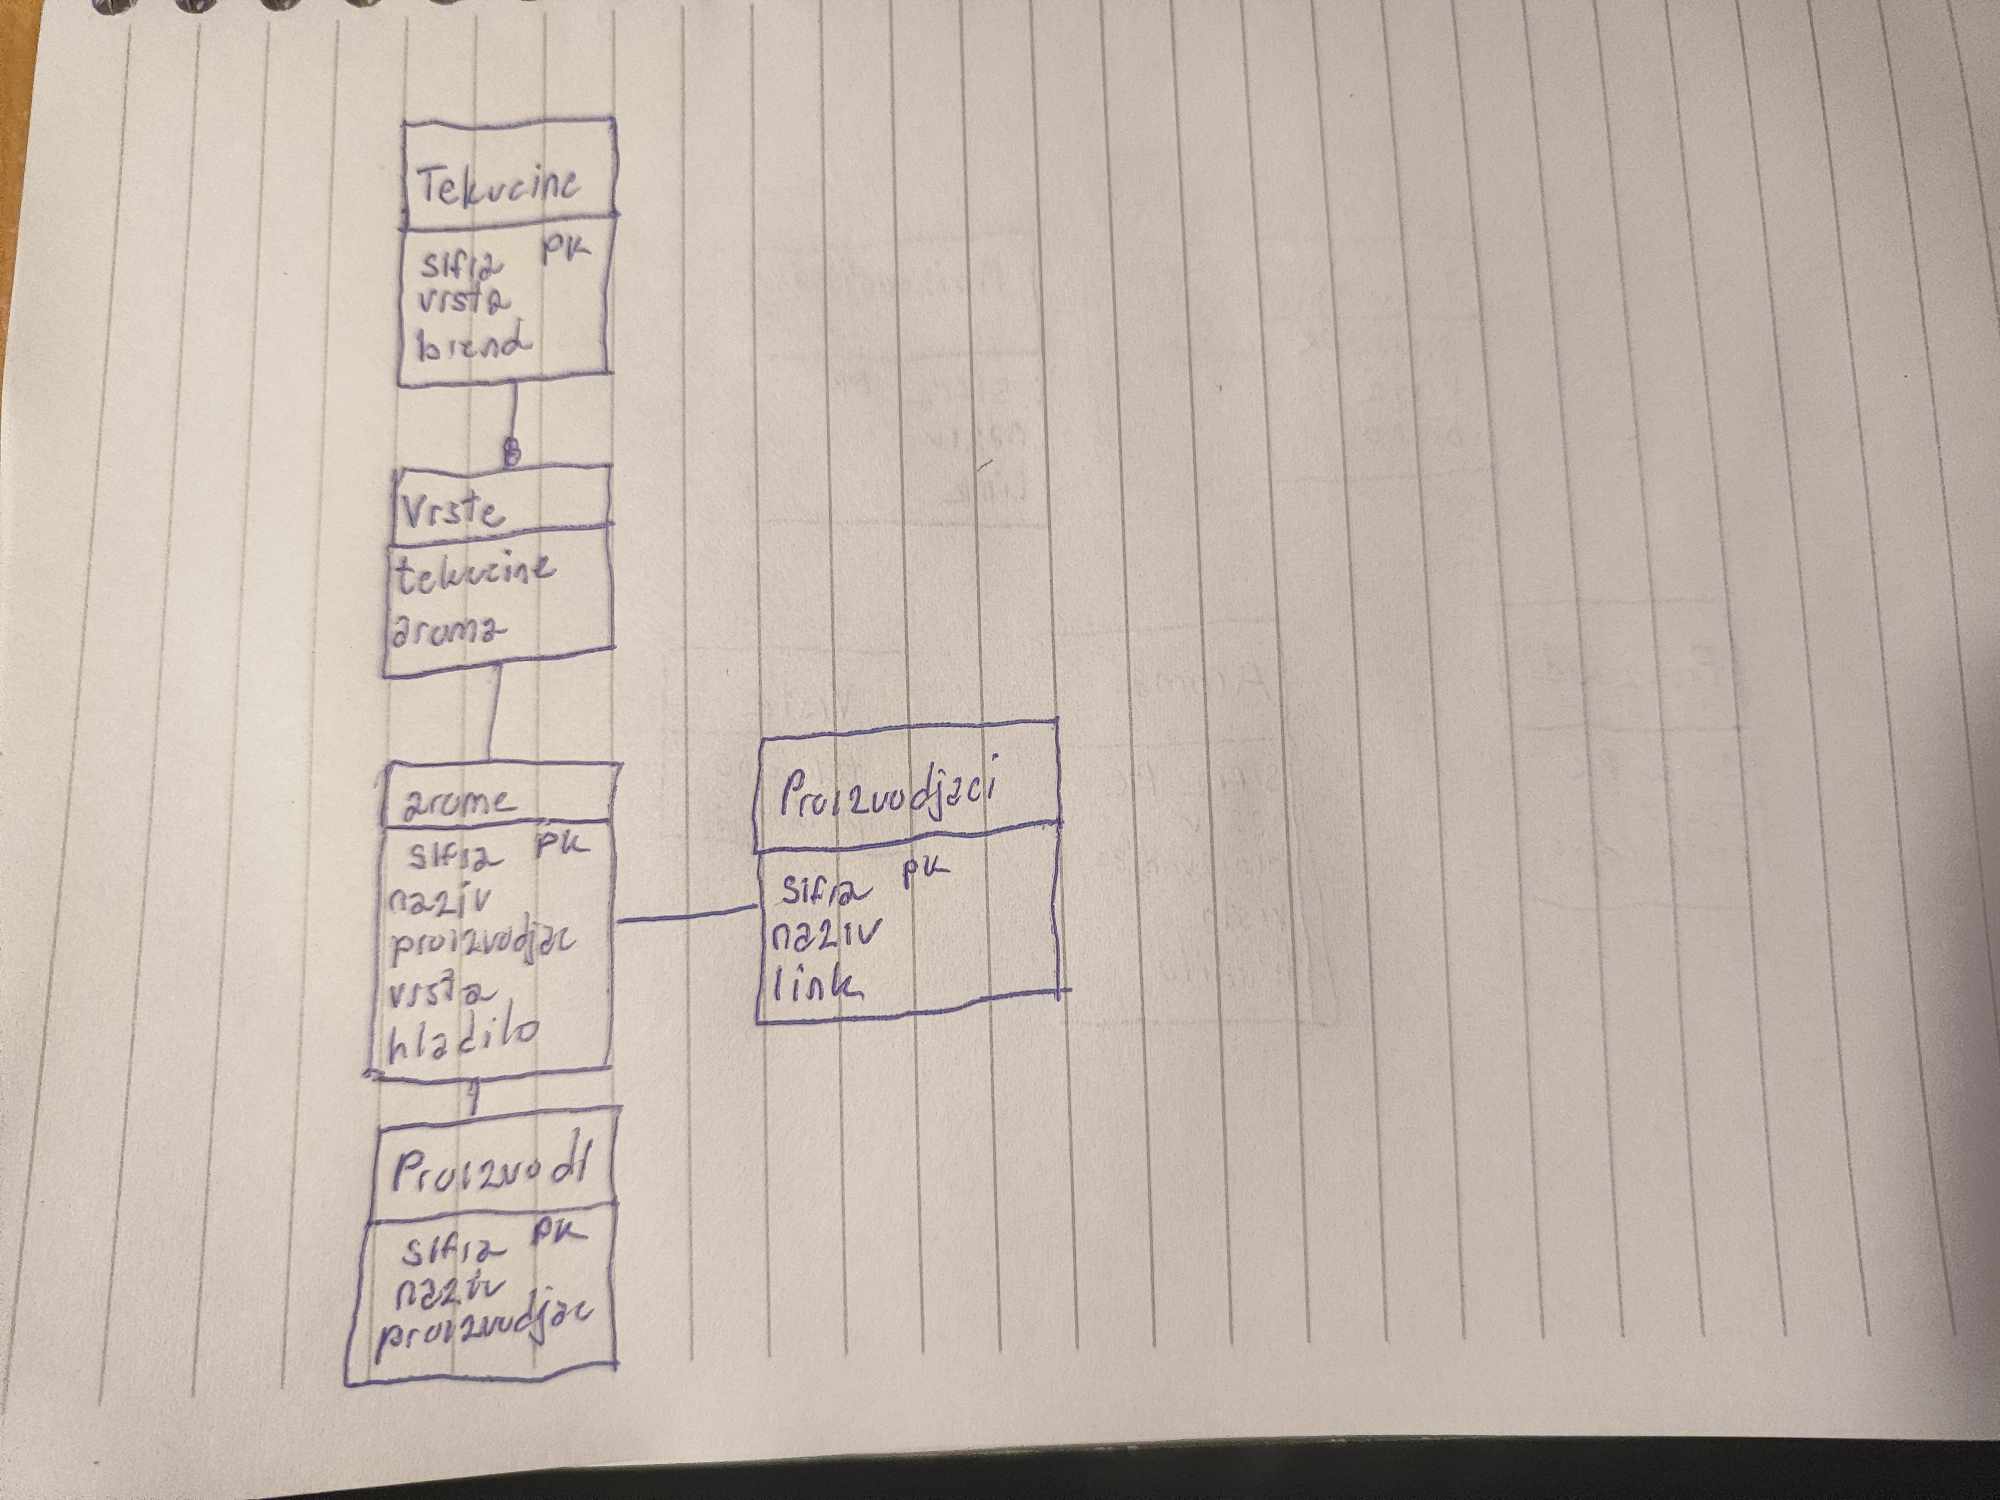 Tekucine
sifra PK
vrsta
brend
Vrste
tekucine
aroma
arome
sifra PK
naziv
proizvodjac
vrsta
hladilo
Proizvodjaci
sifra PK
naziv
link
Proizvodi
sifra PK
naziv
proizvodjac